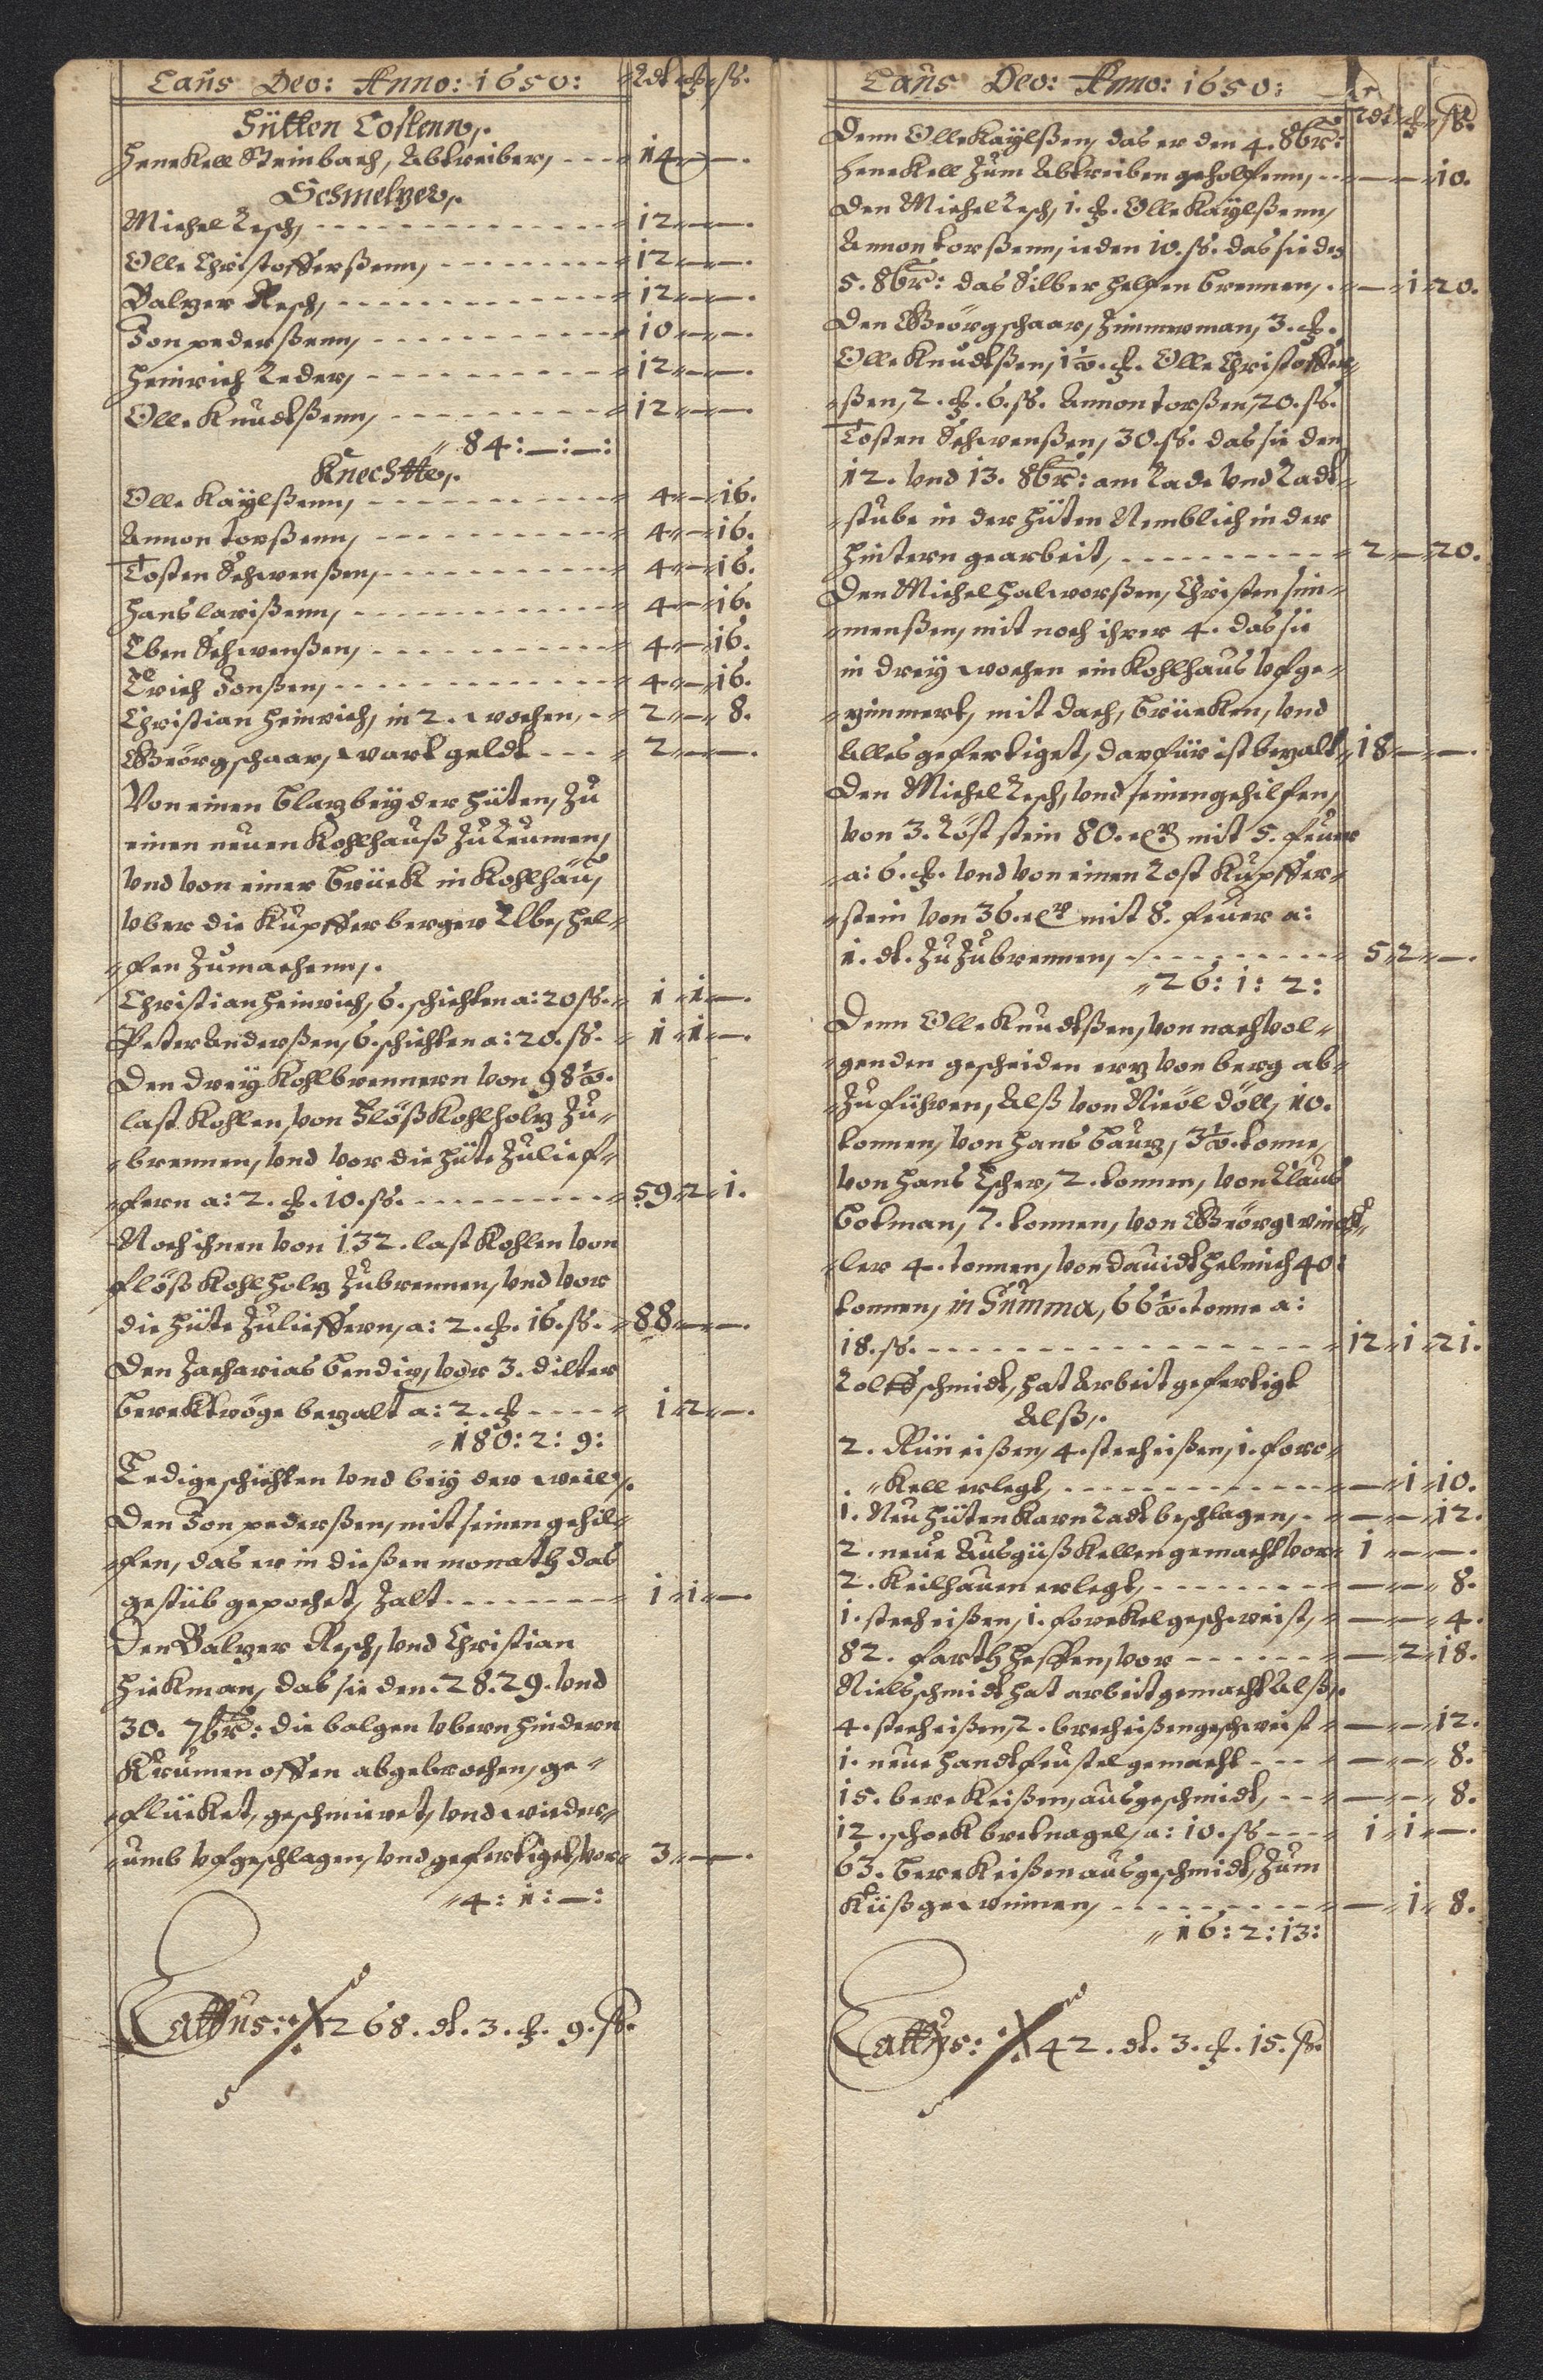 Laus Deo: Anno: 1650: Rdt ʒ ß.
Hütten Costenn,.
Henekell Steinbach, Abtreiber, 14 — —.
Schmeltzer,.
Michel Resch, 12 — —.
Olle Christofferßenn, 12 — —.
Baltzer Resch, 12 — —.
Jon pederßenn, 10 — —.
Heinrich Reder, 12 — —.
Olle Knudtßenn, 12 — —.
84: —: —:
Knechtte,.
Olle Kaÿlßenn, 4 — 16.
Annon torßenn, 4 — 16.
Tosten Schwenßen, 4 — 16.
Hans larißenn, 4 — 16.
Eben Schwenßen, 4 — 16.
Erich Jonßen, 4 — 16.
Christian Heinrich, in 2. wochen, 2 — 8.
Geörg schaar, wart geldt 2 — —.
Von einen Blatz beÿ der Hüten, Zu
einen neuen Kohlhauß Zu Reumen,
Vnd von einer Brück in Kohlhaus,
Vber die Kupfferberger Elbe, hel-
fen Zumachenn,.
Christian Heinrich, 6. schichten a: 20 ß. 1 1 —.
Peter Anderßen, 6. schichten a: 20. ß. 1 1 —.
Den dreÿ Kohlbrennern von 98½.
last Kohlen, von Flöß Kohlholtz Zu-
brennen, vnd vor die Hüte Zulief-
fern a: 2. ʒ. 10. ß. 59 2 1.
Noch ihnen von 132. last Kohlen von
flöß Kohlholtz Zubrennen, Vnd vor
die Hüte Zulieffern, a: 2. ʒ. 16. ß. 88 — —.
Den Zacharias Bendix, vor 3. dilter
Berektröge bezalt a: 2. ʒ 1 2 —.
180: 2: 9:
Ledigeschichten Vnd beÿ der weil,.
Den Jon pederßen, mit seinen gehil-
fen, das er in dießen monath das
gestüb gepochet, Zalt 1 1 —.
Den Baltzer Resch, Vnd Christian
Hickman, das sie den. 28. 29. Vnd
30. 7br: die balgen Vbern hindern
Krumen offen abgebrochen, ge-
flücket, geschmieret, Vnd wieder-
umb Vfgeschlagen, Vnd gefertiget, vor 3 — —.
4: 1: —:
Lattus: 268. dt. 3. ʒ. 9. ß.
Laus Deo: Anno: 1650: Rdt ʒ ß.
Denn Olle Kaÿlßen, das er den 4. 8br:
Henekell Zum Abtreiben geholffenn, — — 10.
Den Michel Resch, 1. ʒ. Olle Kaÿlßenn,
Annon torßenn, ieden 10. ß. das sie den
5. 8br: das Silber helfen brennen, — 1 20.
Den Geörg schaar, Zimmerman, 3. ʒ.
Olle Knudtßen, 1½. ʒ. Olle Christoffer-
ßen, 2. ʒ. 6. ß. Annon torßen, 20. ß.
Tosten Schwenßen, 30. ß. das sie den
12. Vnd 13. 8br: am Rade Vnd Radt-
stube in der Hüten Nemblich in der
Hintern gearbeit, 2 — 20.
Den Michel Halworßen, Christen sim-
menßen, mit noch ihrer 4. das sie
in dreÿ wochen ein Kohlhaus Vfge-
zimmert, mit dach, Brücken, Vnd
Alles gefertiget, darfür ist bezalt 18 — —.
Den Michel Resch, Vnd seinen gehilfen,
von 3. Röst stein 80. Ctr mit 5. feuer
a: 6. ʒ. Vnd von einen Rost Kupffer-
stein von 36. Ctr mit 8. feuer a:
1. dt. Zu Zubrennen, 5 2 —.
26: 1: 2:
Denn Olle Knudtßen, von nachvol-
genden gescheiden ertz von berg ab-
Zuführen, Alß von Nicöl döll, 10.
tonnen, von Hans Bautz, 3½. tonne,
von Hans Escher, 2. tonnen, von Claus
Botman, 7. tonnen, von Geörg winck-
ler 4. tonnen, von dauidt Helmich 40.
tonnen, in Summa, 66½. tonne a:
18. ß. 12 1 21.
Rolff schmidt, hat Arbeit gefertigt
Alß,.
2. Rün eißen, 4. stecheißen, 1. forc-
Kell erlegt, — 1 10.
1. Neu hüten Karn Radt beschlagen, — — 12.
2. neue Ausgüß Kellen gemacht vor 1 — —.
2. Keilhauen erlegt, — — 8.
1. stecheißen, 1. forckel geschweist, — — 4.
82. farth heffen, vor — 2 18.
Niels schmidt hat arbeit gemacht Alß,.
4. stecheißen, 2. brecheißen geschweist — — 12.
1. neue Handtfeustel gemacht — — 8.
15. bereKeißen, ausgeschmidt, — — 8.
12. schock bretnagel, a: 10. ß 1 1 —.
63. bereKeißen ausgeschmidt, Zum
Küß gewinnen, — 1 8.
16: 2: 13:
Lattus: 42. dt. 3. ʒ. 15. ß.